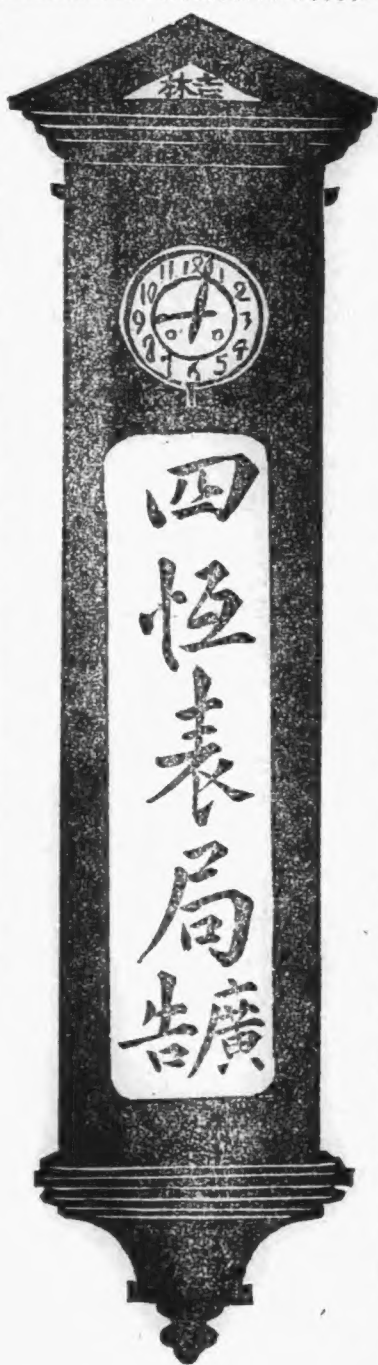 吉林
12
1
2
3
4
5
6
7
8
9
10
11
四恒表局廣告